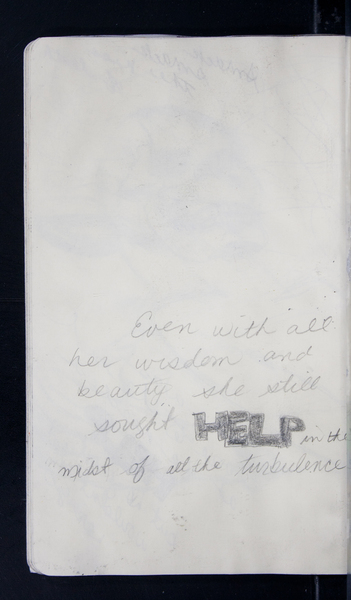 Even with all
her wisdom and
beauty, she still
sought HELP in the
midst of all the turbulence